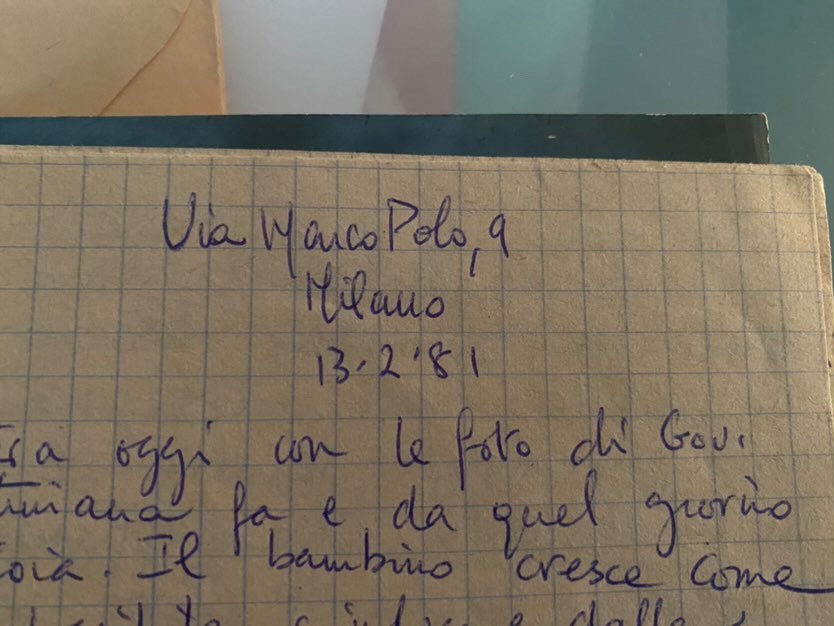 Via Marco Polo, 9
Milano
13.2.'81
oggi con le foto di Gov.
fa e da quel giorno
Il bambino cresce come
e dalle